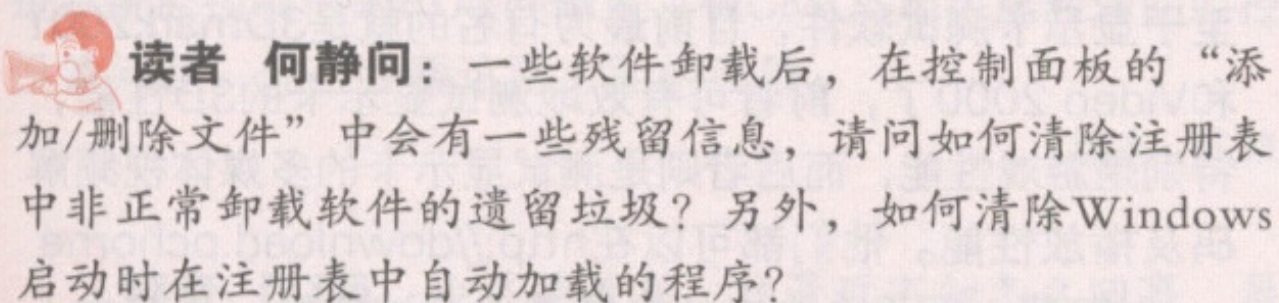 读者 何静问：一些软件卸载后，在控制面板的“添
加/删除文件”中会有一些残留信息，请问如何清除注册表
中非正常卸载软件的遗留垃圾？另外，如何清除Windows
启动时在注册表中自动加载的程序？